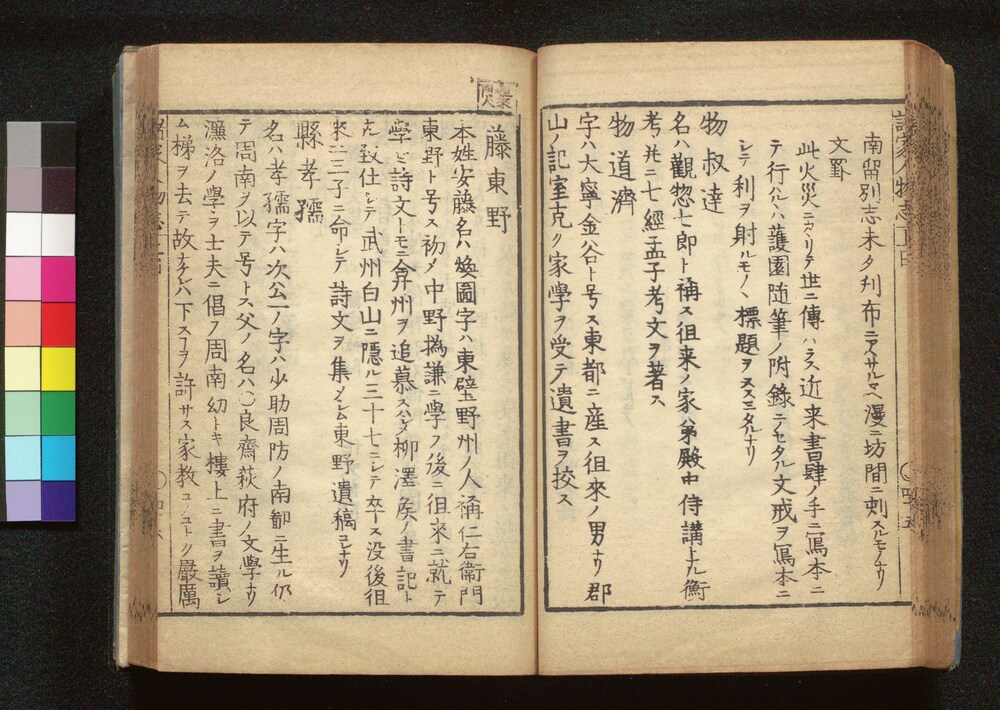 南留別志未タ刋布ニアラサルマヘ漫ニ坊間ニ刻スルモノナリ
文罫
此火災ニカヽリテ世ニ傳ハラス近来書肆ノ手ニ寫本ニ
テ行ルハ蘐園随筆ノ附錄ニノセタル文戒ヲ寫本ニ
シテ利ヲ射ルモノヽ標題ヲヌスミタルナリ
物叔達
名ハ觀惣七郎ト稱ス徂来ノ家弟殿中侍講タル衡
考并ニ七經孟子考文ヲ著ス
物道濟
字ハ大寧金谷ト号ス東都ニ産ス徂來ノ男ナリ郡
山ノ記室克ク家學ヲ受テ遺書ヲ挍ス
藤東野
本姓安藤名ハ煥圖字ハ東璧野州ノ人稱仁右衞門
東野ト号ス初メ中野撝謙ニ學フ後ニ徂來ニ就テ
學ヒ詩文ーモニ弇州ヲ追慕ス柳澤矦ノ書記ト
致仕シテ武州白山ニ隱ル三十七ニシテ卒ース没後徂
來二三子ニ命シテ詩文ヲ集ノシム東野遺稿コレナリ
縣孝孺
名ハ孝孺字ハ次公一ノ字ハ少助周防ノ南鄙ニ生ル仍
テ周南ヲ以テ号トス父ノ名ハ〇良齋荻府ノ文學ナリ
濂洛ノ學ヲ士夫ニ倡フ周南幼トキ樓上ニ書ヲ讀シ
ム梯ヲ去テ故ナケレハ下スヿヲ許サス家教コノヿトク嚴厲